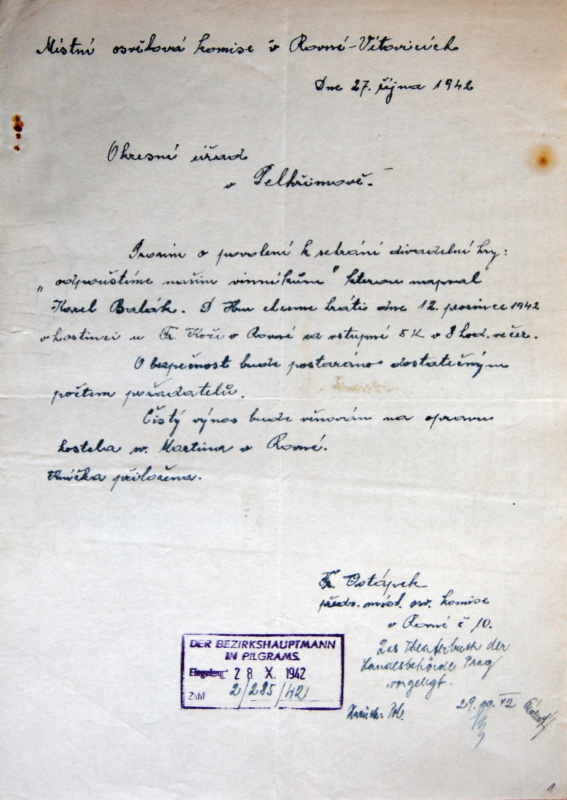 Místní osvětová komise v Rovné-Vítovicích
Dne 27. října 1942
Okresní úřad
v Pelhřimově.
Prosím o povolení k sehrání divadelní hry:
„odpouštíme našim vinníkům" kterou napsal
Karel Balák. D Hru chceme hráti dne 12. prosince 1942
v hostinci u Fr. Koči v Rovné za vstupné 5 K v 8 hod. večer.
O bezpečnost bude postaráno dostatečným
počtem pořadatelů.
Čistý výnos bude věnován na opravu
kostela sv. Martina v Rovné.
Knížka přiložena.
Fr. Ostápek
předs. míst. osv. komise
v Rovné č 10.
Das Theaterbuch der
Landesbehörde Prag
vorgelegt.
DER BEZIRKSHAUPTMANN
IN PILGRAMS.
Eingelangt 28 X. 1942
Zahl 2/285/42
1